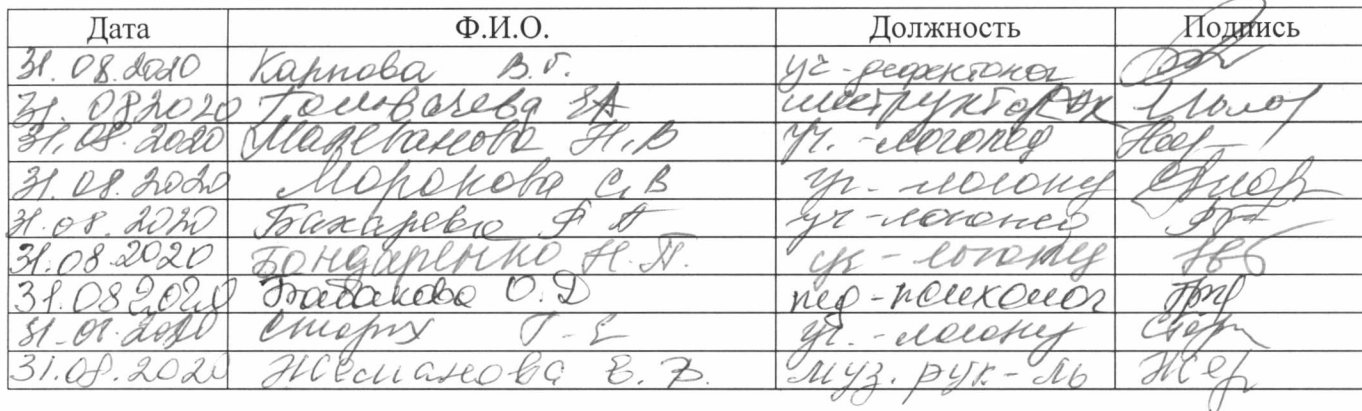 Дата Ф.И.О. Должность Подпись
31.08.2020 Карпова В.Г. уч-дефектолог
31.08.2020 Головачева ЕА инструктор ФК
31.08.2020 Малеванова Н.В уч.-логопед
31.08.2020 Моронова С,В уч.-логопед
31.08.2020 Бахарева уч-логопед
31.08.2020 Бондаренко Н.П. уч-логопед
31.08.2020 Бабакова О.Д пед-психолог
31.08.2020 уч.-логопед
31.08.2020 Е.В. муз.рук-ль